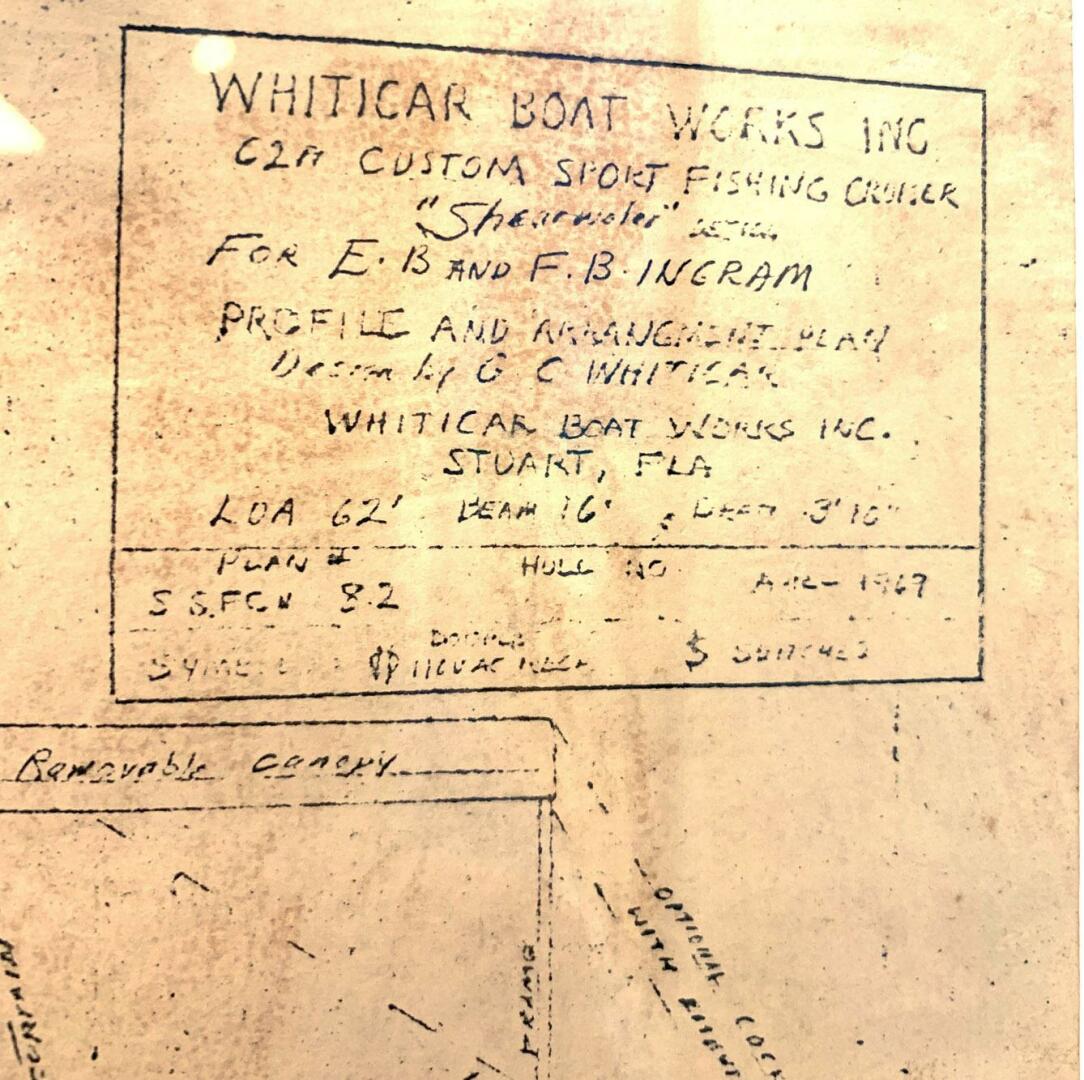 WHITICAR BOAT WORKS INC
62ft CUSTOM SPORT FISHING CRUISER
"Shearwater" DESIGN
FOR E.B AND F.B. INGRAM
PROFILE AND ARRANGMENT PLAN
Design by G C WHITICAR
WHITICAR BOAT WORKS INC.
STUART, FLA
LOA 62' BEAM 16' DRAFT 3'10"
PLAN # HULL NO
1969
82
DOUBLE
110V AC $ SWITCHES
Removable canopy
CURTAIN
FRAME
OPTIONAL
WITH